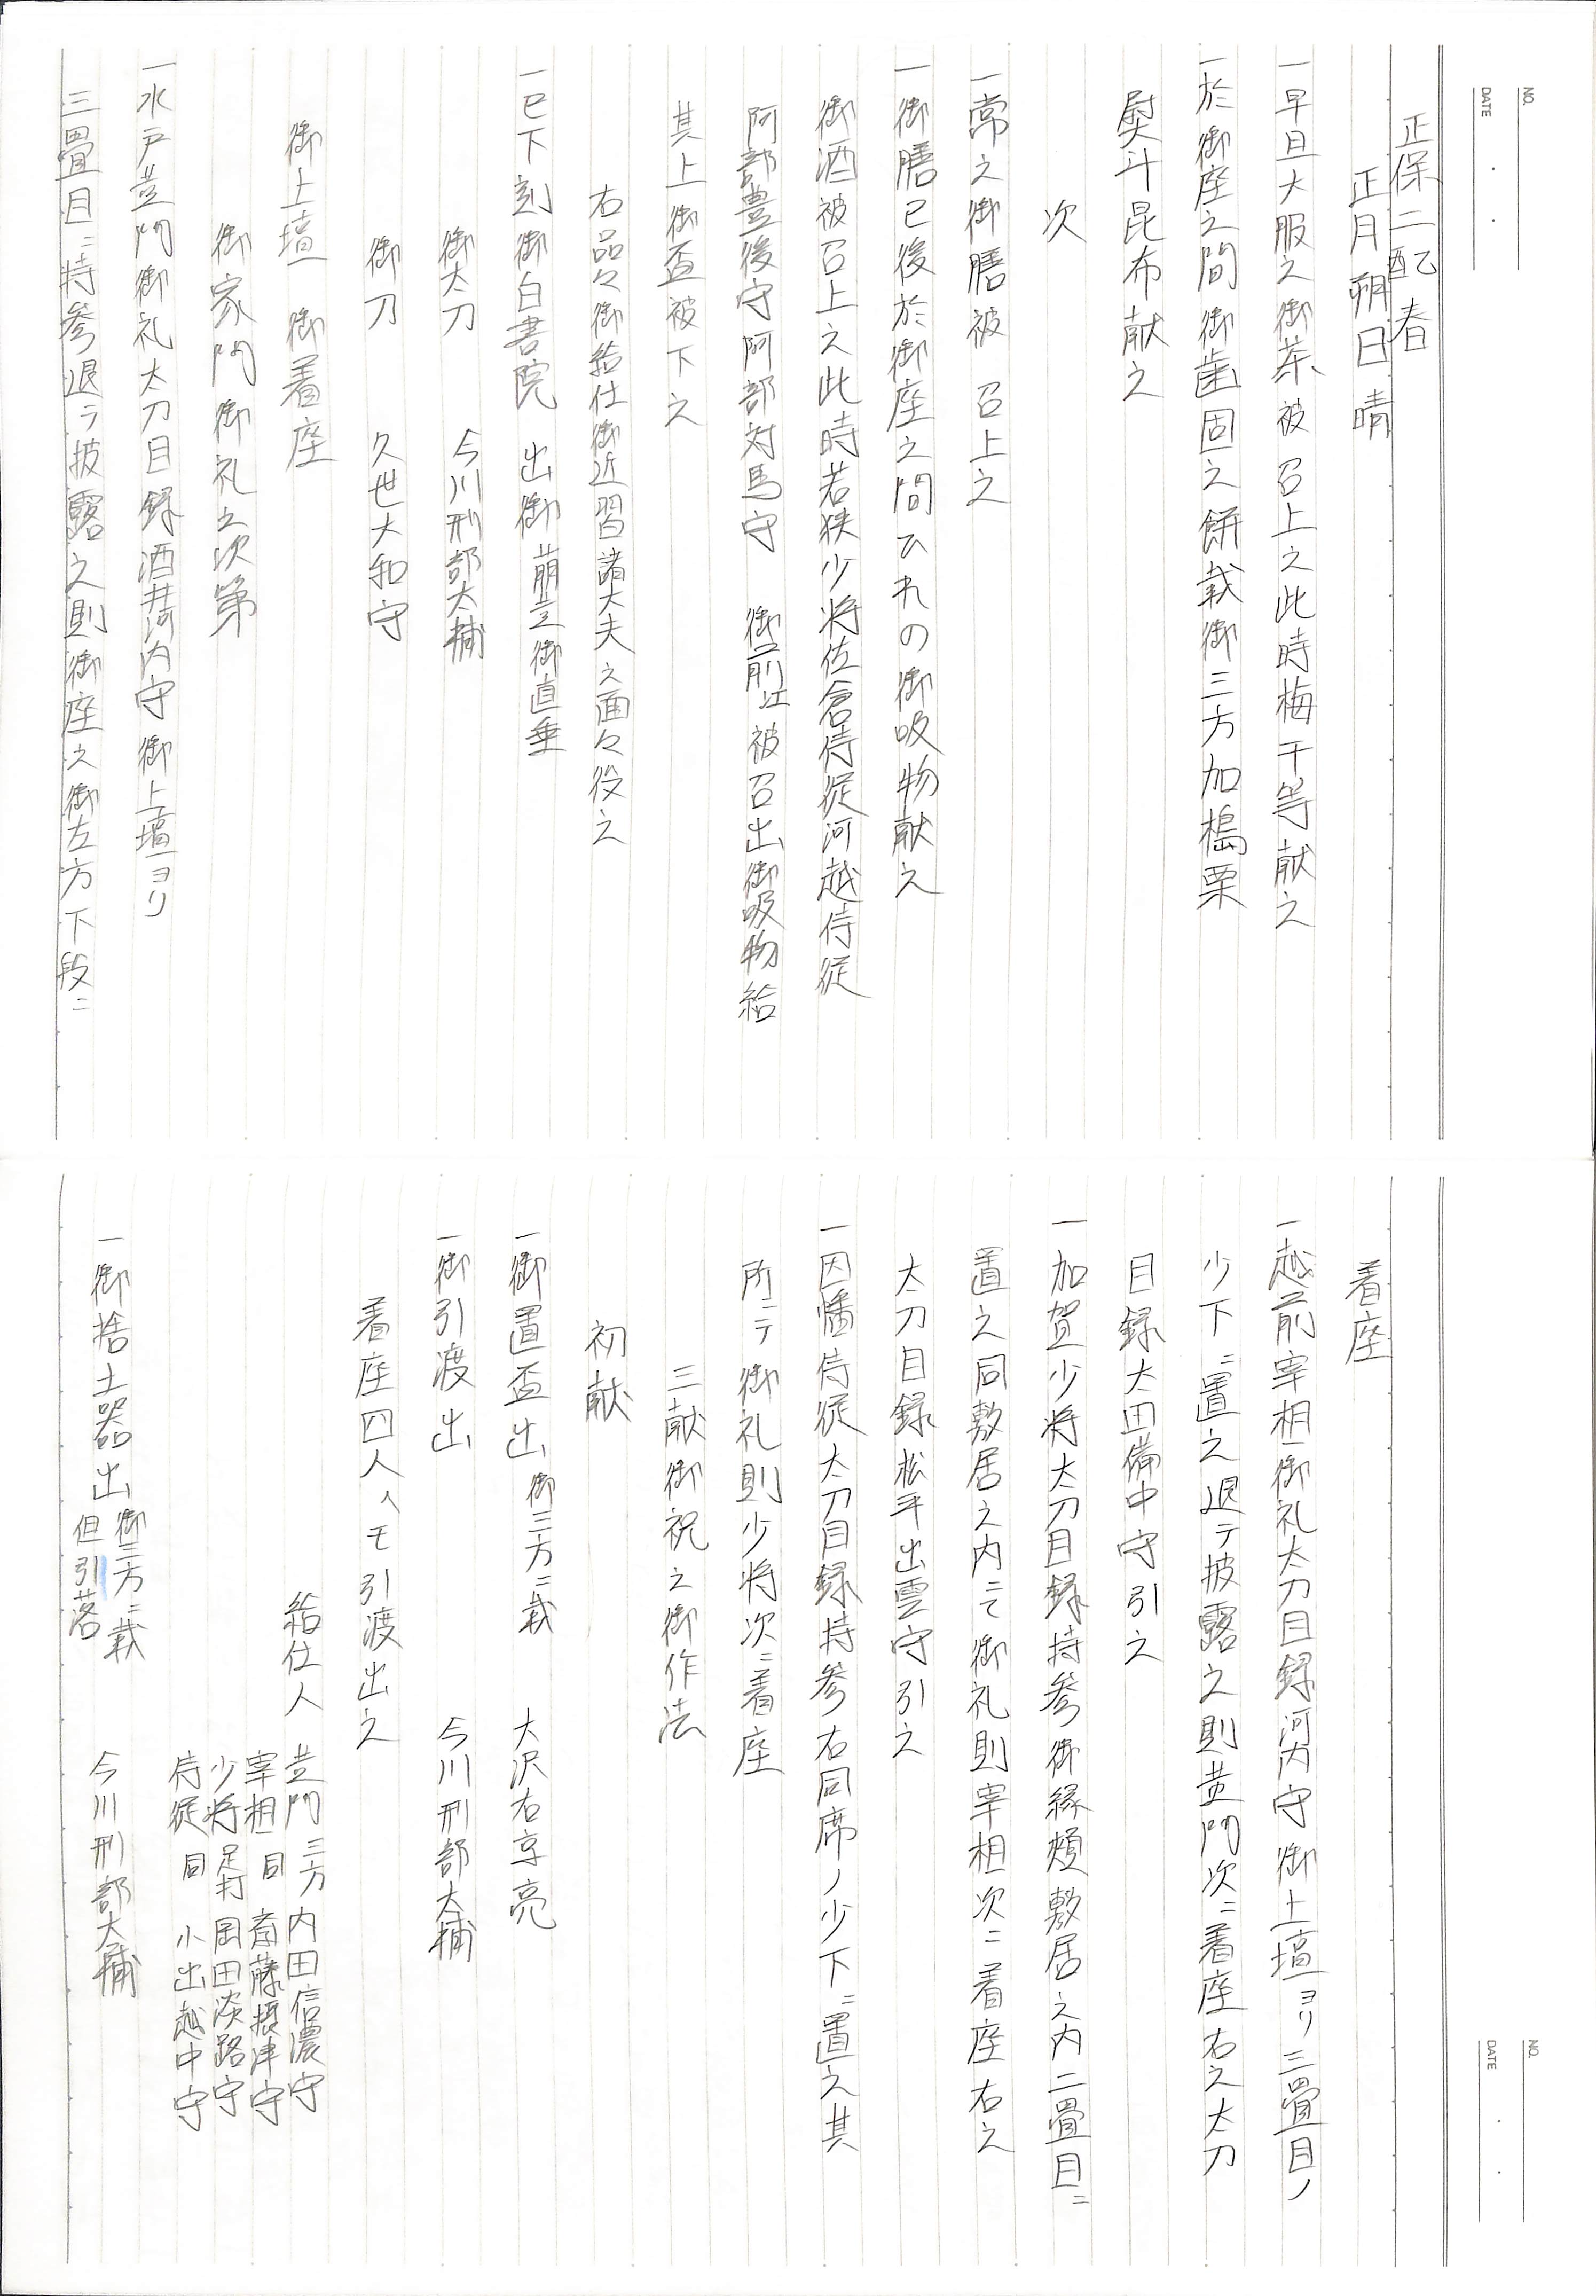 NO.
DATE
正保二酉乙春
正月朔日晴
一早旦大服之御茶被召上之此時梅干等献之
一於御座之間御歯固之餅載御三方加搗栗
熨斗昆布献之
次
一常之御膳被召上之
一御膳已後於御座之間ひれの御吸物献之
御酒被召上之此時若狭少将佐倉侍従河越侍従
阿部豊後守阿部対馬守 御前江被召出御吸物給
其上御盃被下之
右品々御給仕御近習諸大夫之面々役之
一巳下刻御白書院 出御 萠黄御直垂
御太刀 今川刑部太輔
御刀 久世大和守
御上壇 御着座
御家門御礼之次第
一水戸黄門御礼太刀目録酒井河内守御上壇ヨリ
三畳目ニ持参退テ披露之則御座之御左方下段ニ
NO.
DATE
着座
一越前宰相御礼太刀目録河内守御上壇ヨリ三畳目ノ
少下ニ置之退テ披露之則黄門次ニ着座右之太刀
目録太田備中守引之
一加賀少将太刀目録持参御縁頬敷居之内二畳目ニ
置之同敷居之内ニて御礼則宰相次ニ着座右之
太刀目録松平出雲守引之
一因幡侍従太刀目録持参右同席ノ少下ニ置之其
所ニテ御礼則少将次ニ着座
三献御祝之御作法
初献
一御置盃出 御三方ニ載 大沢右京亮
一御引渡出 今川刑部太輔
着座四人ヘモ引渡出之
給仕人 黄門 三方 内田信濃守
宰相 同 斎藤摂津守
少将 足打 岡田淡路守
侍従 同 小出越中守
一御捨土器出 御三方ニ載 但引落 今川刑部太輔